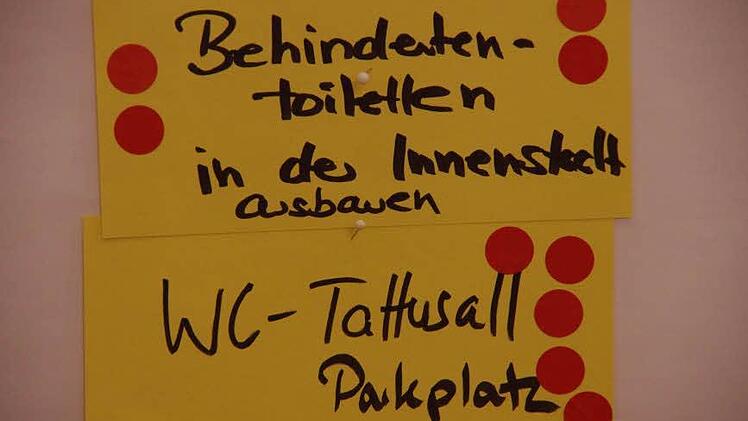 Behinderten-
toiletten
in der Innenstadt
ausbauen
WC-Tattusall
Parkplatz